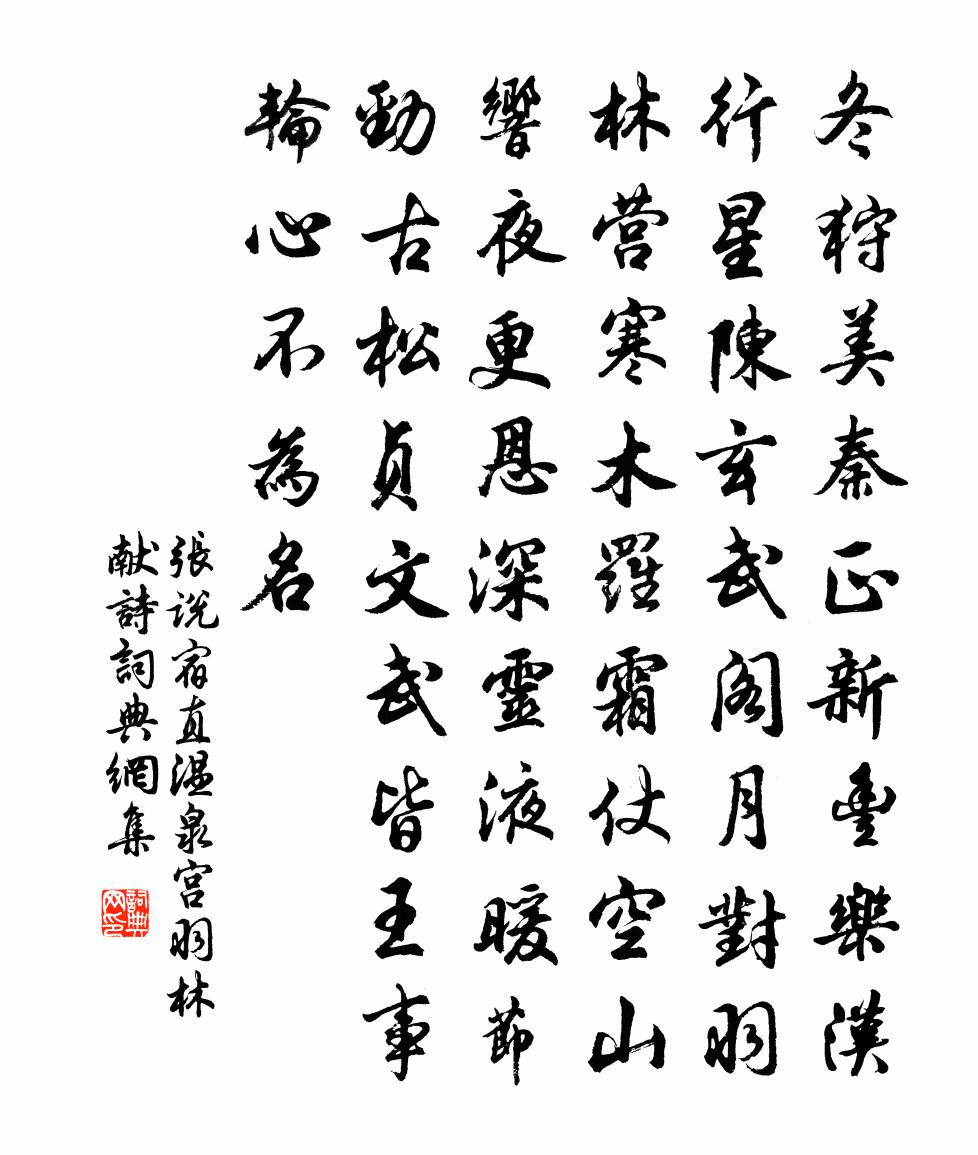 冬狩美秦正新豊樂漢
行星陳玄武閣月對羽
林营寒木羅霜仗空山
響夜更恩深靈液暖節
勁古松貞文武皆王事
輪心不為名
張说宿直温泉宫羽林
献詩詞典網集
詞典
网印